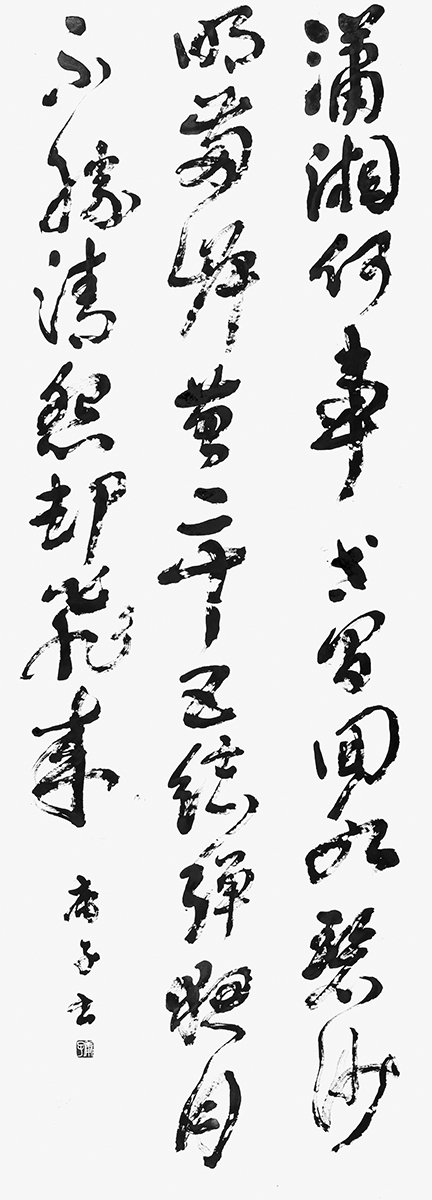 瀟湘何事等閒回水碧沙
明兩岸苔二十五絃彈夜月
不勝清怨却飛來
子